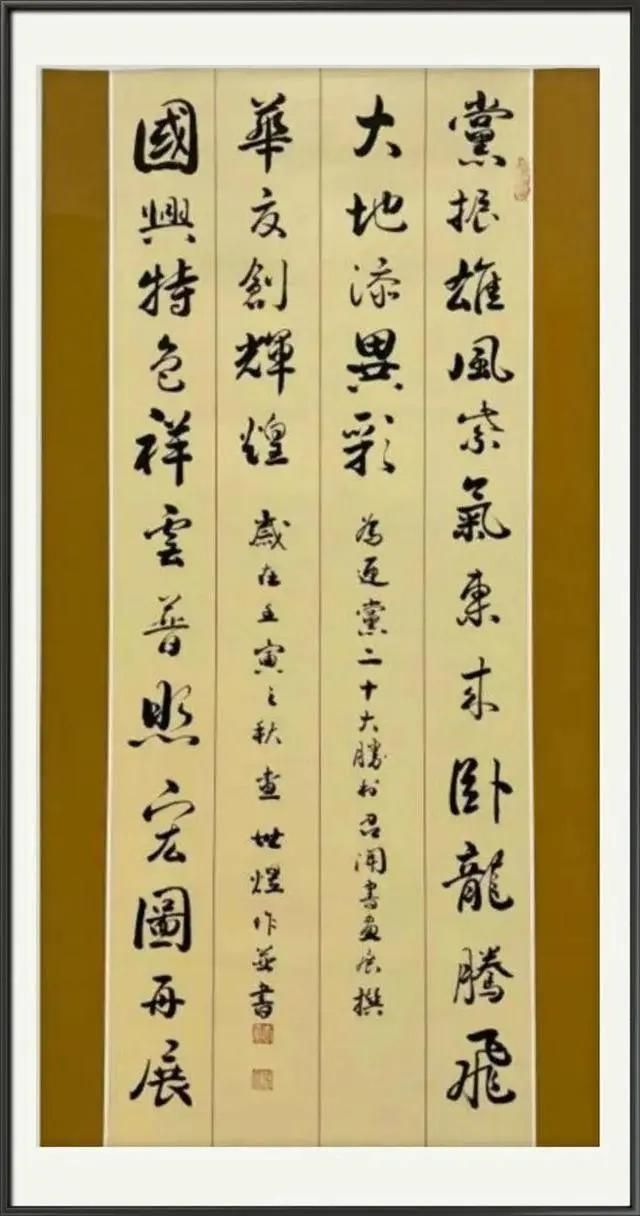 黨振雄風紫氣東來臥龍騰飛
大地添異彩
為迎黨二十大勝利召開書畫展撰
國興特色祥雲普照宏圖再展
華夏創輝煌
歲在壬寅之秋查世煜作並書